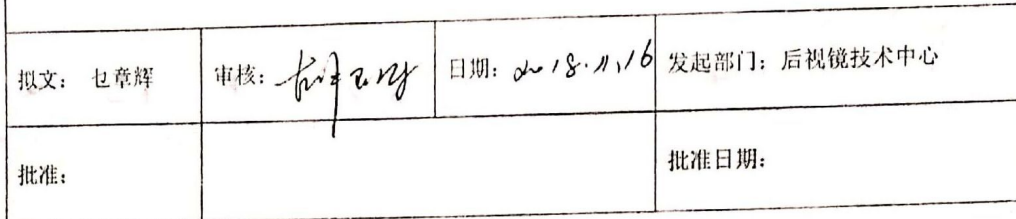 拟文： 乜章辉 审核： 日期：2018.11.16 发起部门：后视镜技术中心
批准： 批准日期：